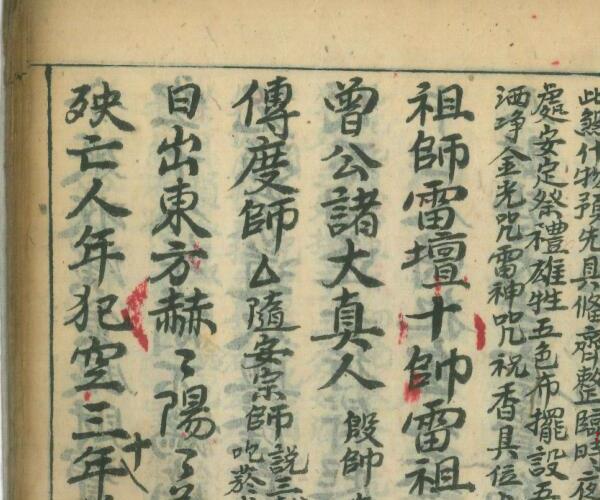 此煞什物預先具條齊整臨時夜
處安定祭禮雄牲五色布擺設五
洒净金光咒雷神咒祝香具位
祖師雷壇十帥雷祖
曾公諸大真人 殷帥
傳度師厶隨安宗師說三
日出東方赫〻陽〻
殃亡人年犯空三年
十八